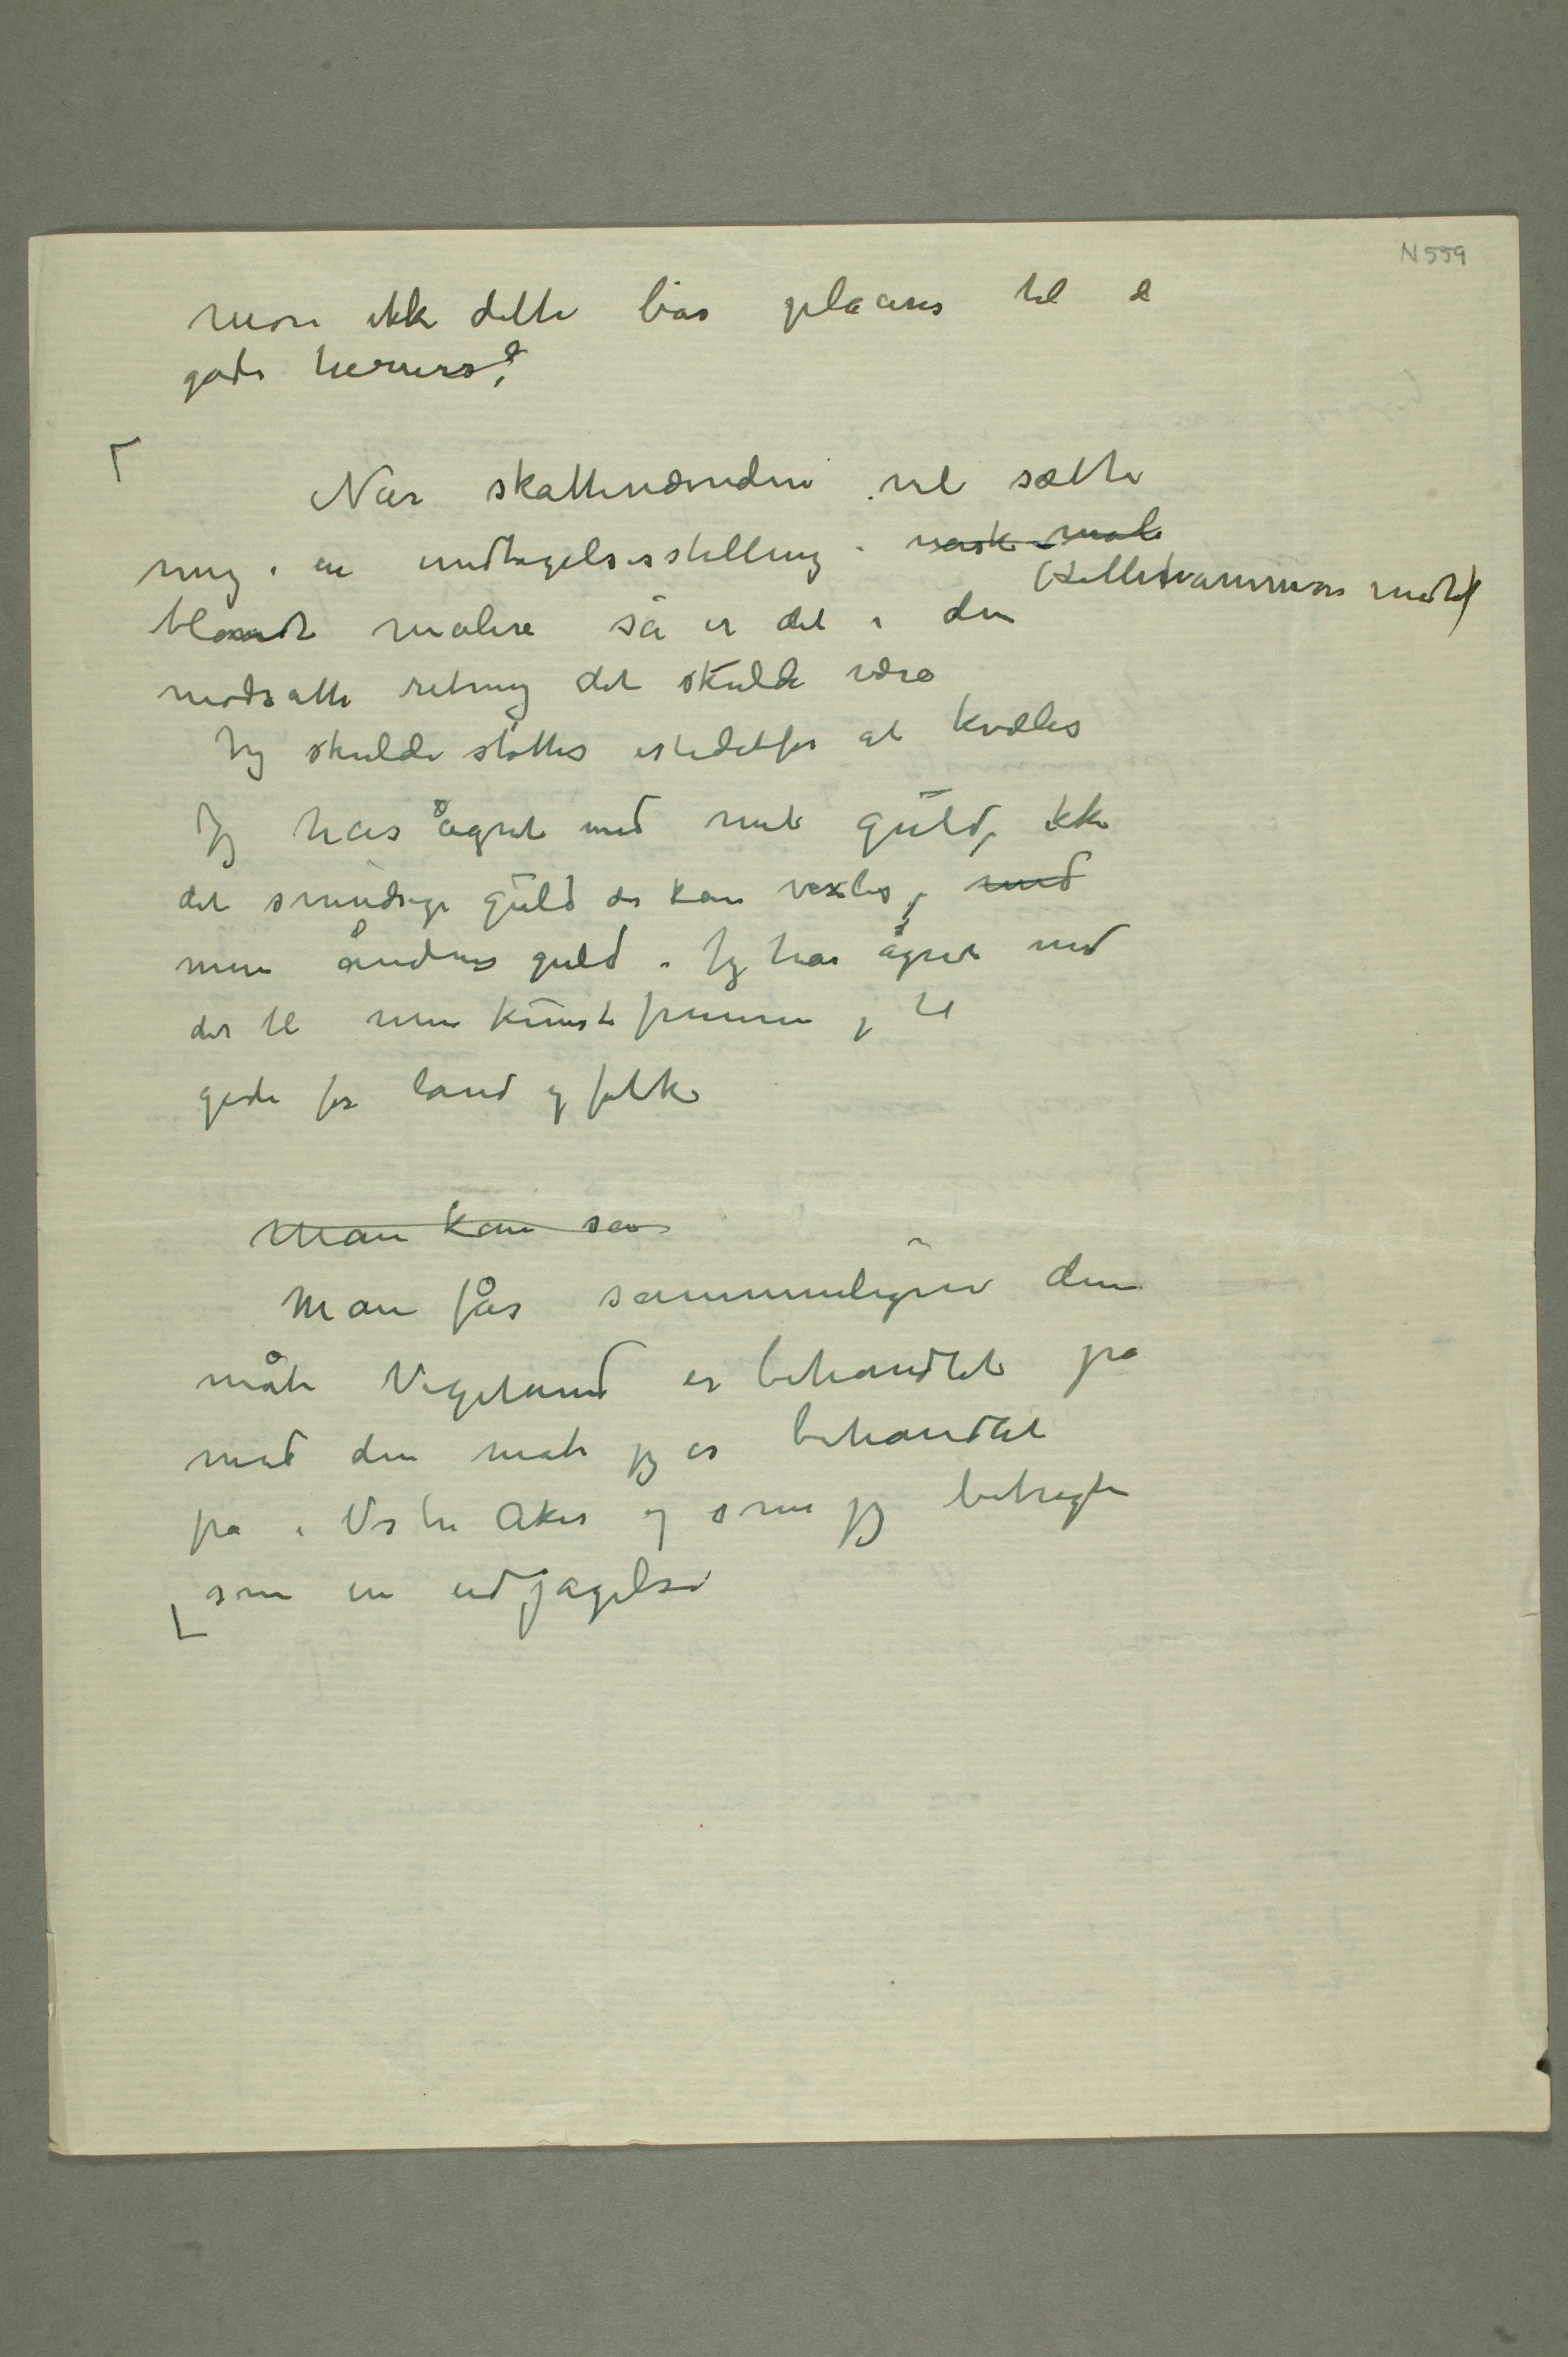 N 559
mon ikke dette bør plasceres til de
gode herrers?
Når skattenævnden vil sætte
mig i en undtagelsesstilling i norsk male
(Lillehammers medtat)
blandt malere så er det i den
modsatte retning det skulde være
Jeg skulde støttes istedetfor at kvæles
Jeg har ågret med mit guld, ikke
det smudsige guld der kan vexles, med
men åndens guld. Jeg har ågret med
det til min kunsts fremme, til
gode for land og folk
Man kan sa
Man får sammenligne den
måte Vigeland er behandlet på
med den måte jeg er behandlet
på i Vestre Aker og som jeg betragter
som en udjagelse